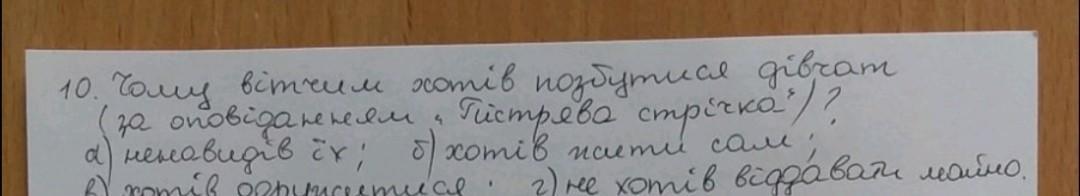 10. Чому вітчим хотів позбутися дівчат
(за оповіданням „Пістрява стрічка")?
а) ненавидів їх; б) хотів жити сам;
в) хотів одружитися; г) не хотів віддавати майно.